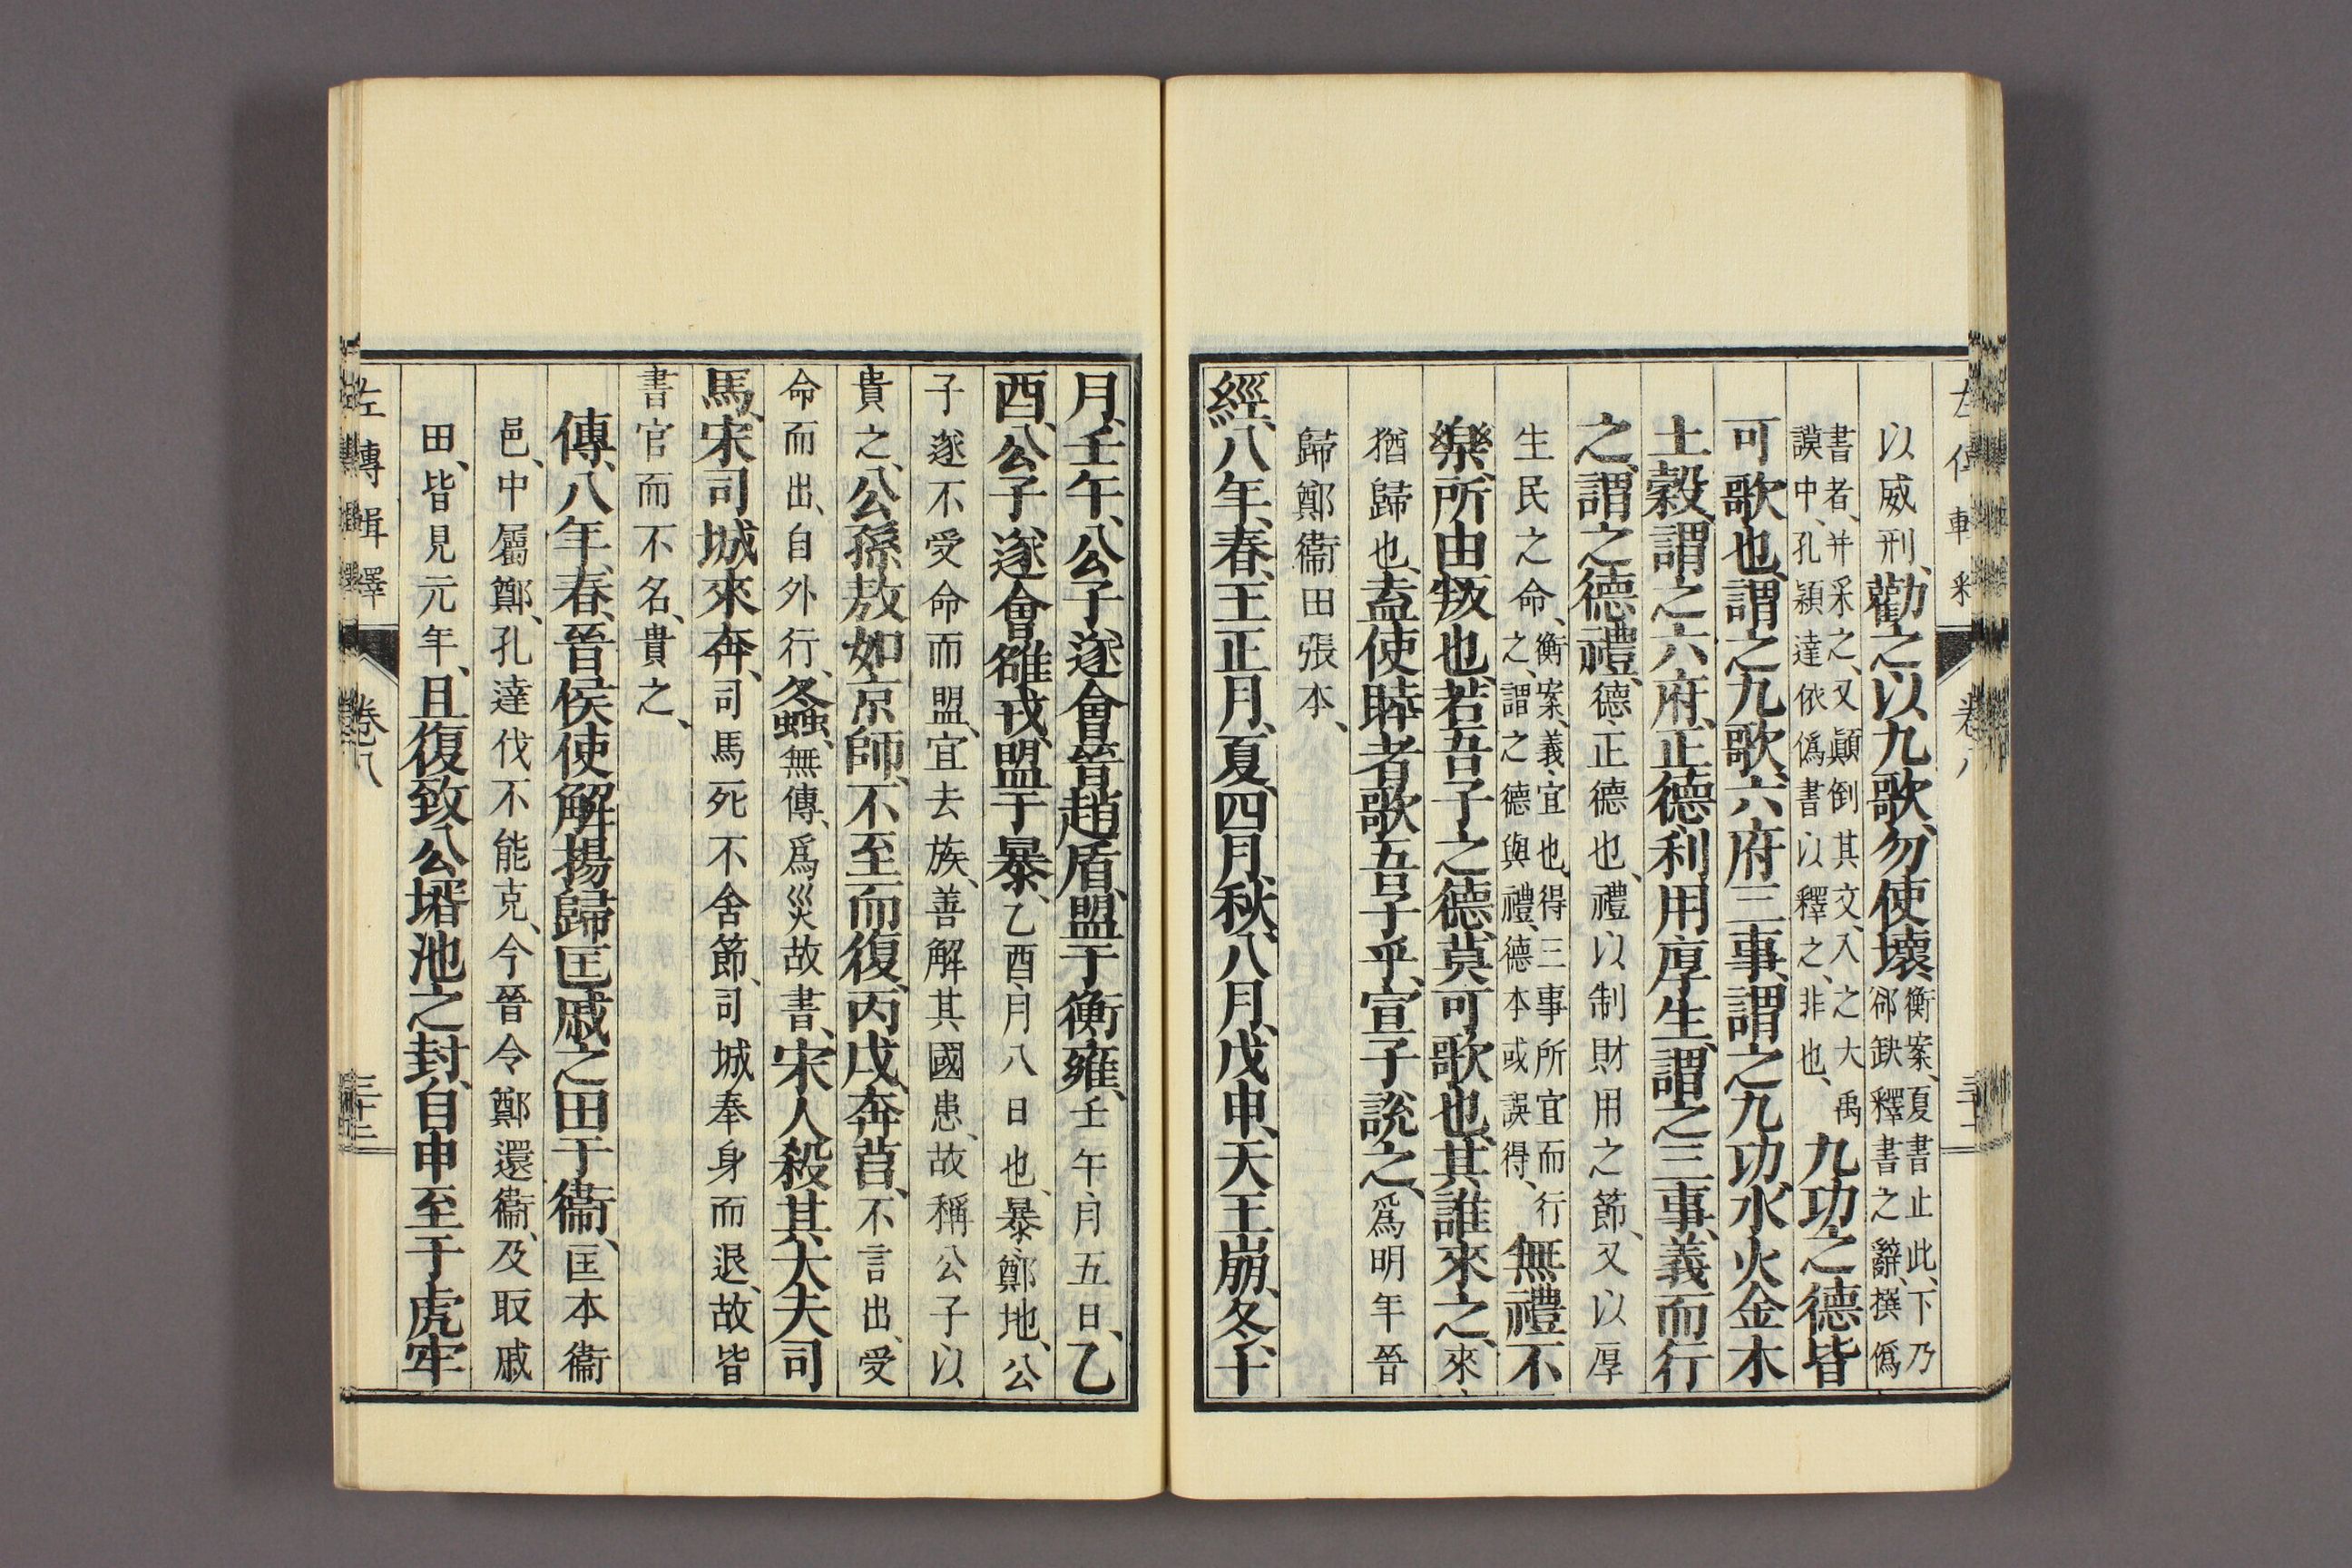 左傳輯釋 卷八
以威刑、勸之以九歌、勿使壞、衡案、夏書止此、下乃郤缺釋書之辭、撰僞
書者、并采之、又顚倒其文、入之大禹謨中、孔穎達依僞書以釋之、非也、九功之德皆
可歌也、謂之九歌、六府三事、謂之九功、水火金木
土穀、謂之六府、正德利用厚生、謂之三事、義而行
之、謂之德禮、德、正德也、禮以制財用之節、又以厚
生民之命、衡案、義、宜也、得三事所宜而行之、謂之德與禮、德本或誤得、無禮不
樂、所由叛也、若吾子之德、莫可歌也、其誰來之、來、
猶歸也、盍使睦者歌吾子乎、宣子說之、爲明年晉
歸鄭衞田張本、
經、八年、春、王正月、夏、四月、秋、八月、戊申、天王崩、冬、十
月、壬午、公子遂會晉趙盾、盟于衡雍、壬午、月五日、乙
酉、公子遂會雒戎、盟于暴、乙酉、月八日也、暴、鄭地、公
子遂不受命而盟、宜去族、善解其國患、故稱公子以
貴之、公孫敖如京師、不至而復、丙戌、奔莒、不言出、受
命而出、自外行、冬、螽、無傳、爲災故書、宋人殺其大夫司
馬、宋司城來奔、司馬死不舍節、司城奉身而退、故皆
書官而不名、貴之、
傳、八年、春、晉侯使解揚歸匡戚之田于衞、匡本衞
邑、中屬鄭、孔達伐不能克、今晉令鄭還衞、及取戚
田、皆見元年、且復致公壻池之封、自申至于虎牢
左傳輯釋 卷八 三十三